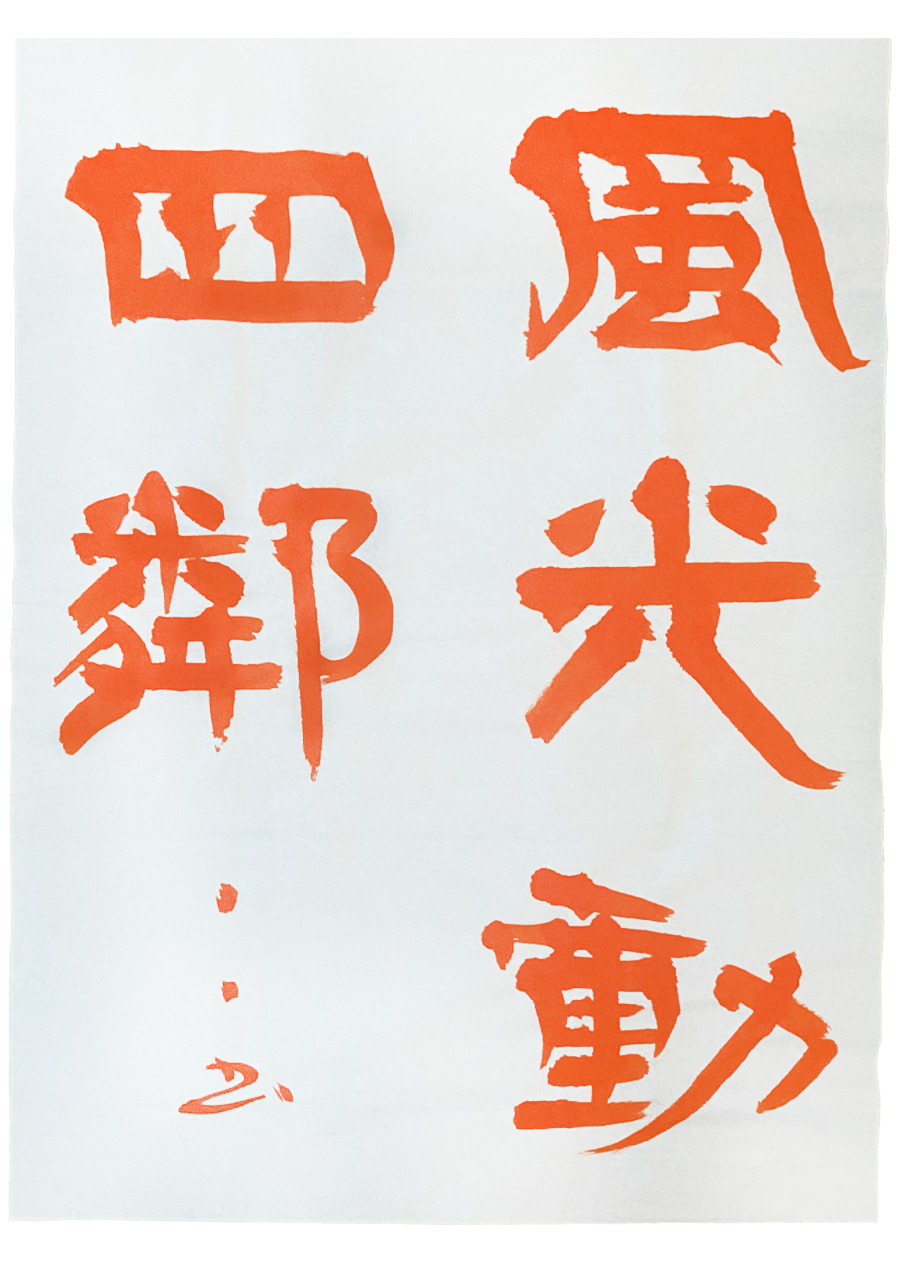 風光動
四鄰